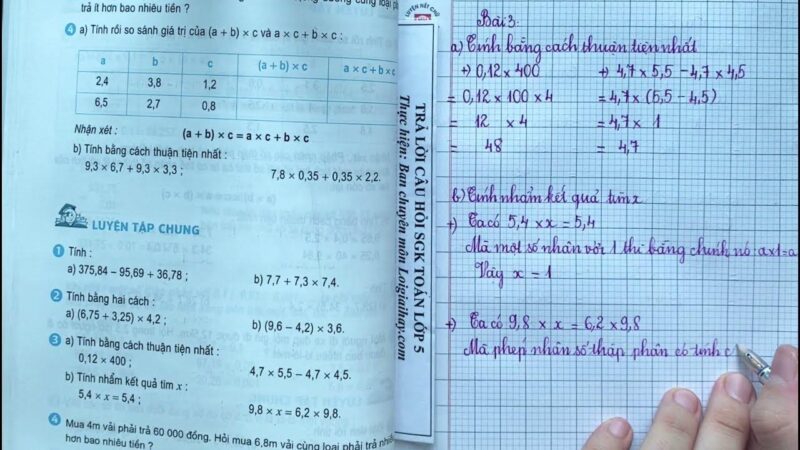 trả ít hơn bao nhiêu tiền ?
4 a) Tính rồi so sánh giá trị của (a + b) × c và a × c + b × c :
a b c (a + b) × c a × c + b ×
2,4 3,8 1,2
6,5 2,7 0,8
Nhận xét : (a + b) × c = a × c + b × c
b) Tính bằng cách thuận tiện nhất :
9,3 × 6,7 + 9,3 × 3,3 ; 7,8 × 0,35 + 0,35 × 2,2.
LUYỆN TẬP CHUNG
1 Tính :
a) 375,84 – 95,69 + 36,78 ; b) 7,7 + 7,3 × 7,4.
2 Tính bằng hai cách :
a) (6,75 + 3,25) × 4,2 ; b) (9,6 – 4,2) × 3,6.
3 a) Tính bằng cách thuận tiện nhất :
0,12 × 400 ; 4,7 × 5,5 – 4,7 × 4,5.
b) Tính nhẩm kết quả tìm x :
5,4 × x = 5,4 ; 9,8 × x = 6,2 × 9,8.
4 Mua 4m vải phải trả 60 000 đồng. Hỏi mua 6,8m vải cùng loại phải trả nhiều
hơn bao nhiêu tiền ?
LUYỆN NÉT CHỮ
TRẢ LỜI CÂU HỎI SGK TOÁN LỚP 5
Thực hiện: Ban chuyên môn Loigiaihay.com
Bài 3:
a) Tính bằng cách thuận tiện nhất
+) 0,12 × 400 +) 4,7 × 5,5 – 4,7 × 4,5
= 0,12 × 100 × 4 = 4,7 × (5,5 – 4,5)
= 12 × 4 = 4,7 × 1
= 48 = 4,7
b) Tính nhẩm kết quả tìm x
+) Ta có 5,4 × x = 5,4
Mà một số nhân với 1 thì bằng chính nó : a×1=a
Vậy x = 1
+) Ta có 9,8 × x = 6,2 × 9,8
Mà phép nhân số thập phân có tính c